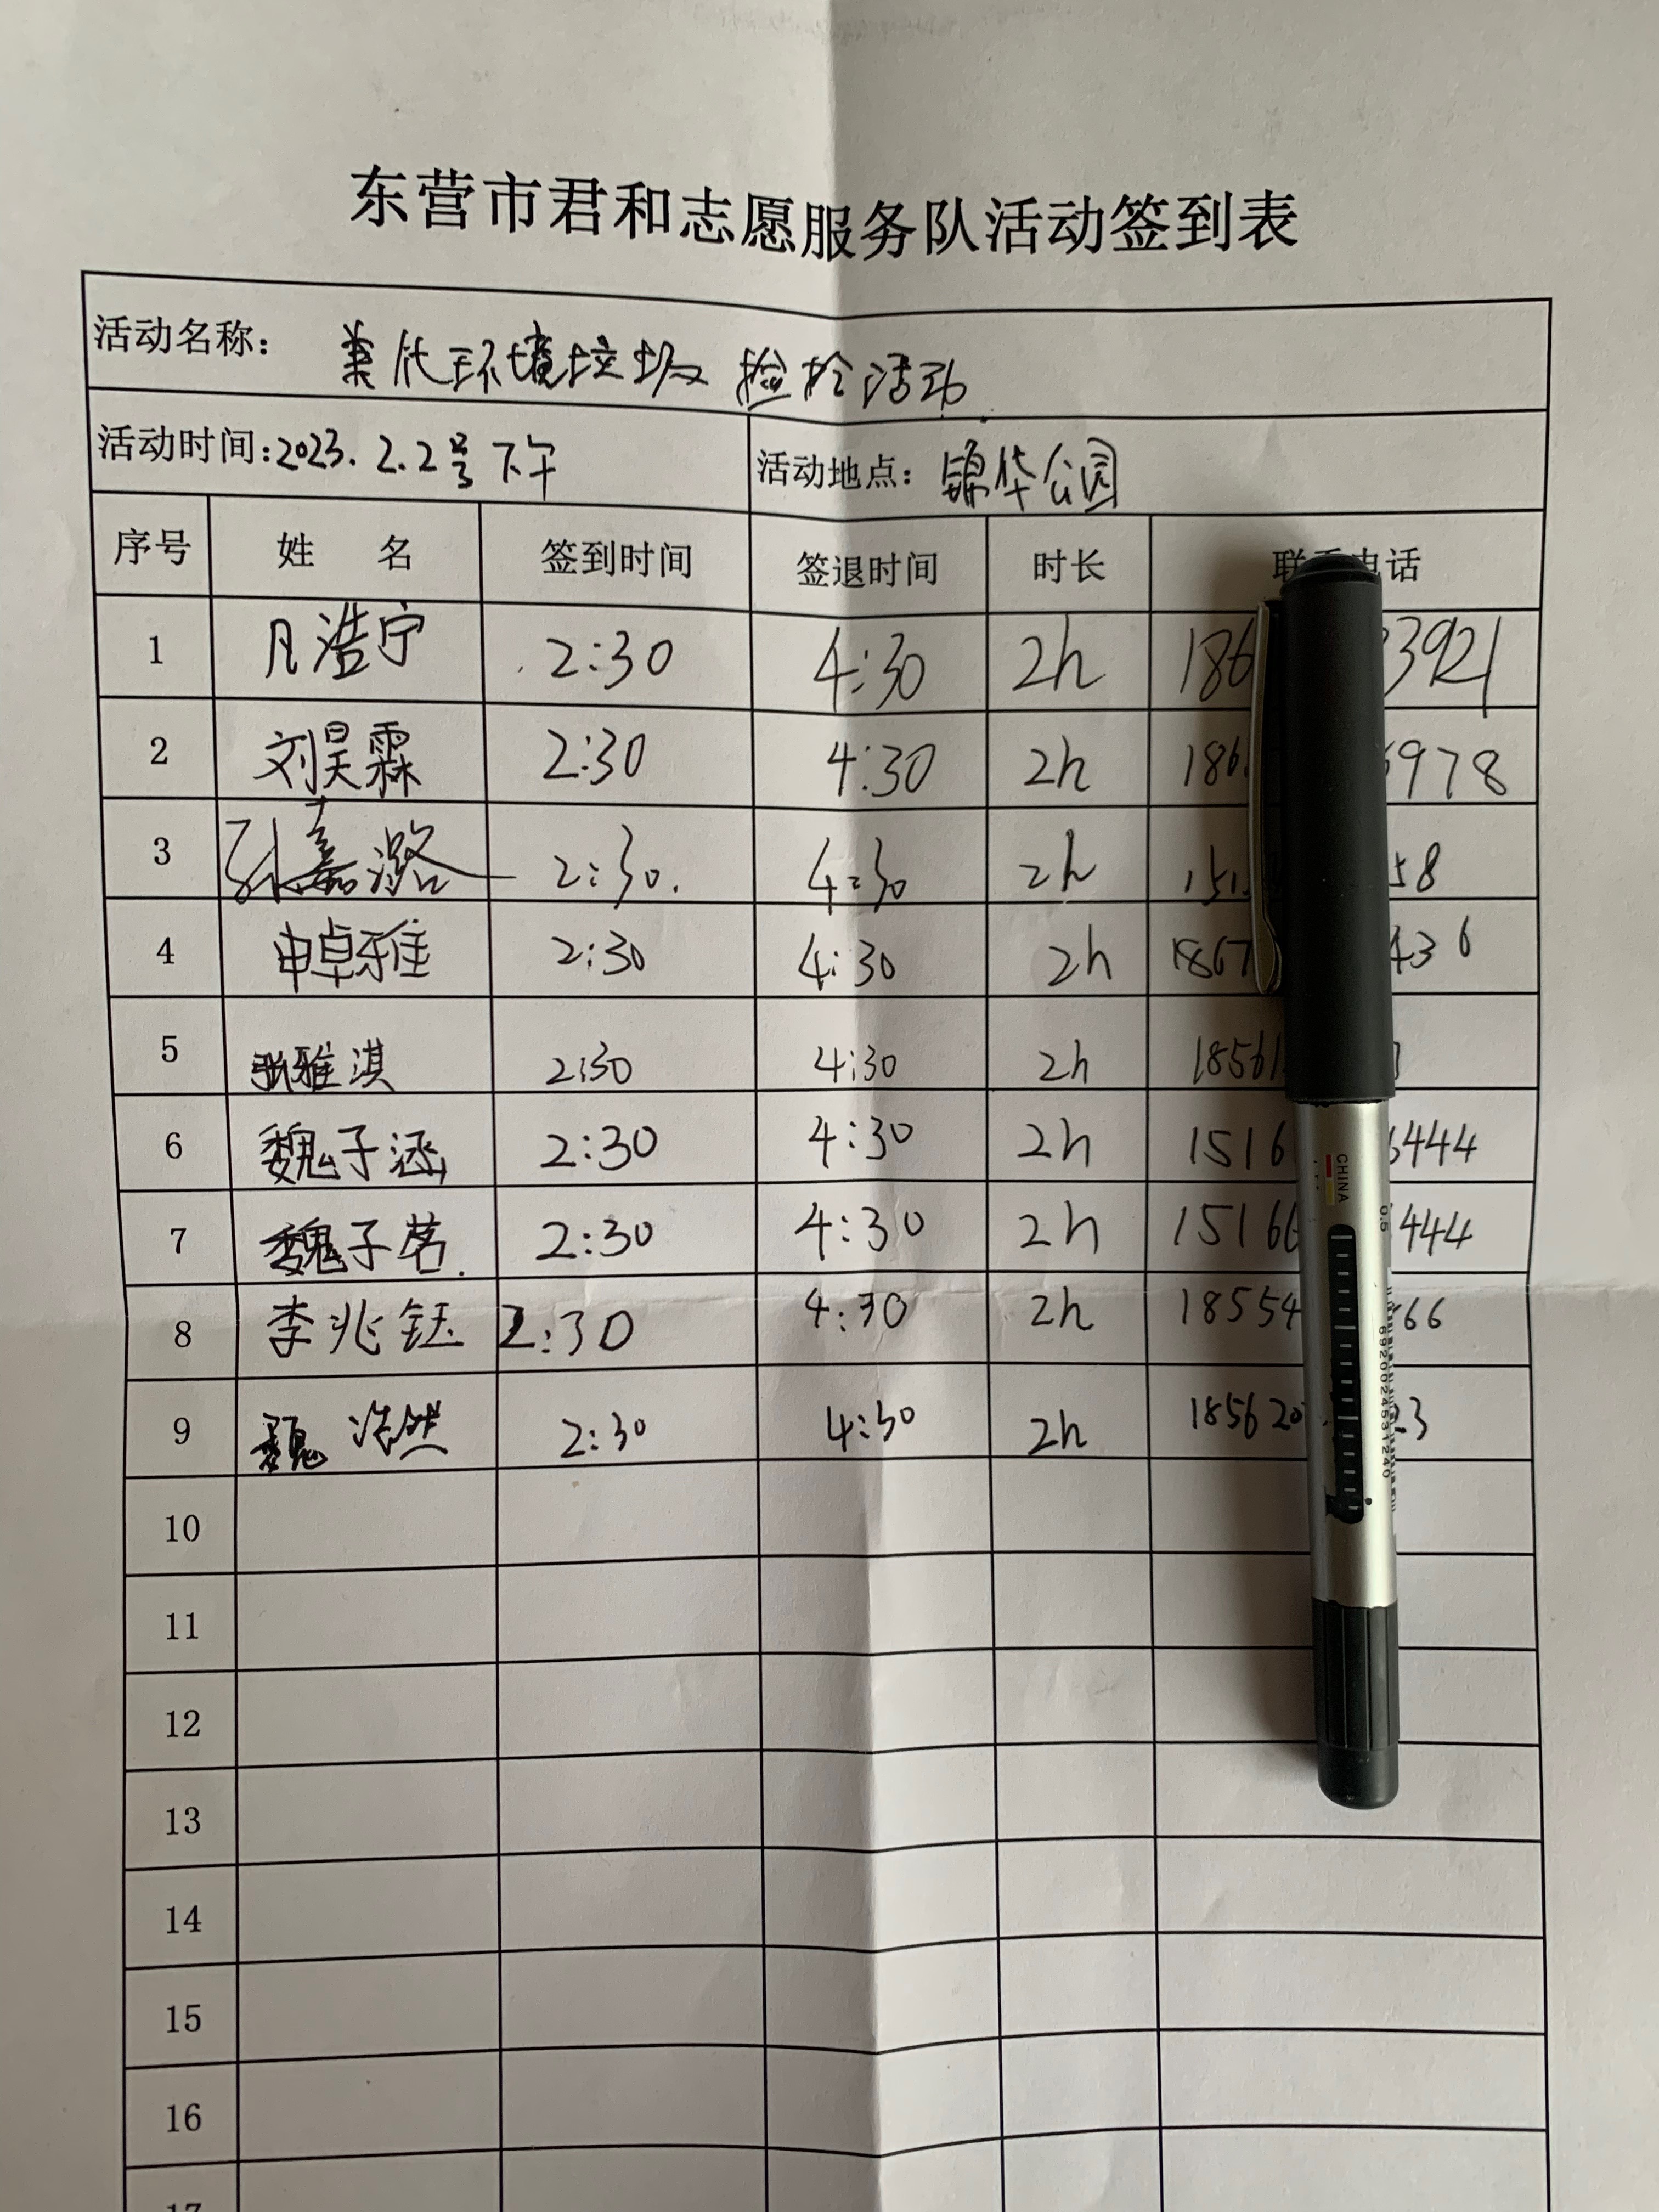 东营市君和志愿服务队活动签到表
活动名称: 美化环境垃圾捡拾活动
活动时间:2023.2.2号下午 活动地点: 锦华公园
序号 姓 名 签到时间 签退时间 时长 话
1 浩宁 2:30 4:30 2h 186 3921
2 刘昊霖 2:30 4:30 2h 186 978
3 嘉潞 2:30. 4:30 2h 151 58
4 申卓雅 2:30 4:30 2h 1867 436
5 张雅淇 2:30 4:30 2h 18561
6 魏子涵 2:30 4:30 2h 1516 444
7 魏子茗. 2:30 4:30 2h 15166 444
8 李兆钰 2:30 4:30 2h 18554 66
9 魏浩然 2:30 4:30 2h 185620 23
10
11
12
13
14
15
16
17
CHINA
0.5
6920024531240